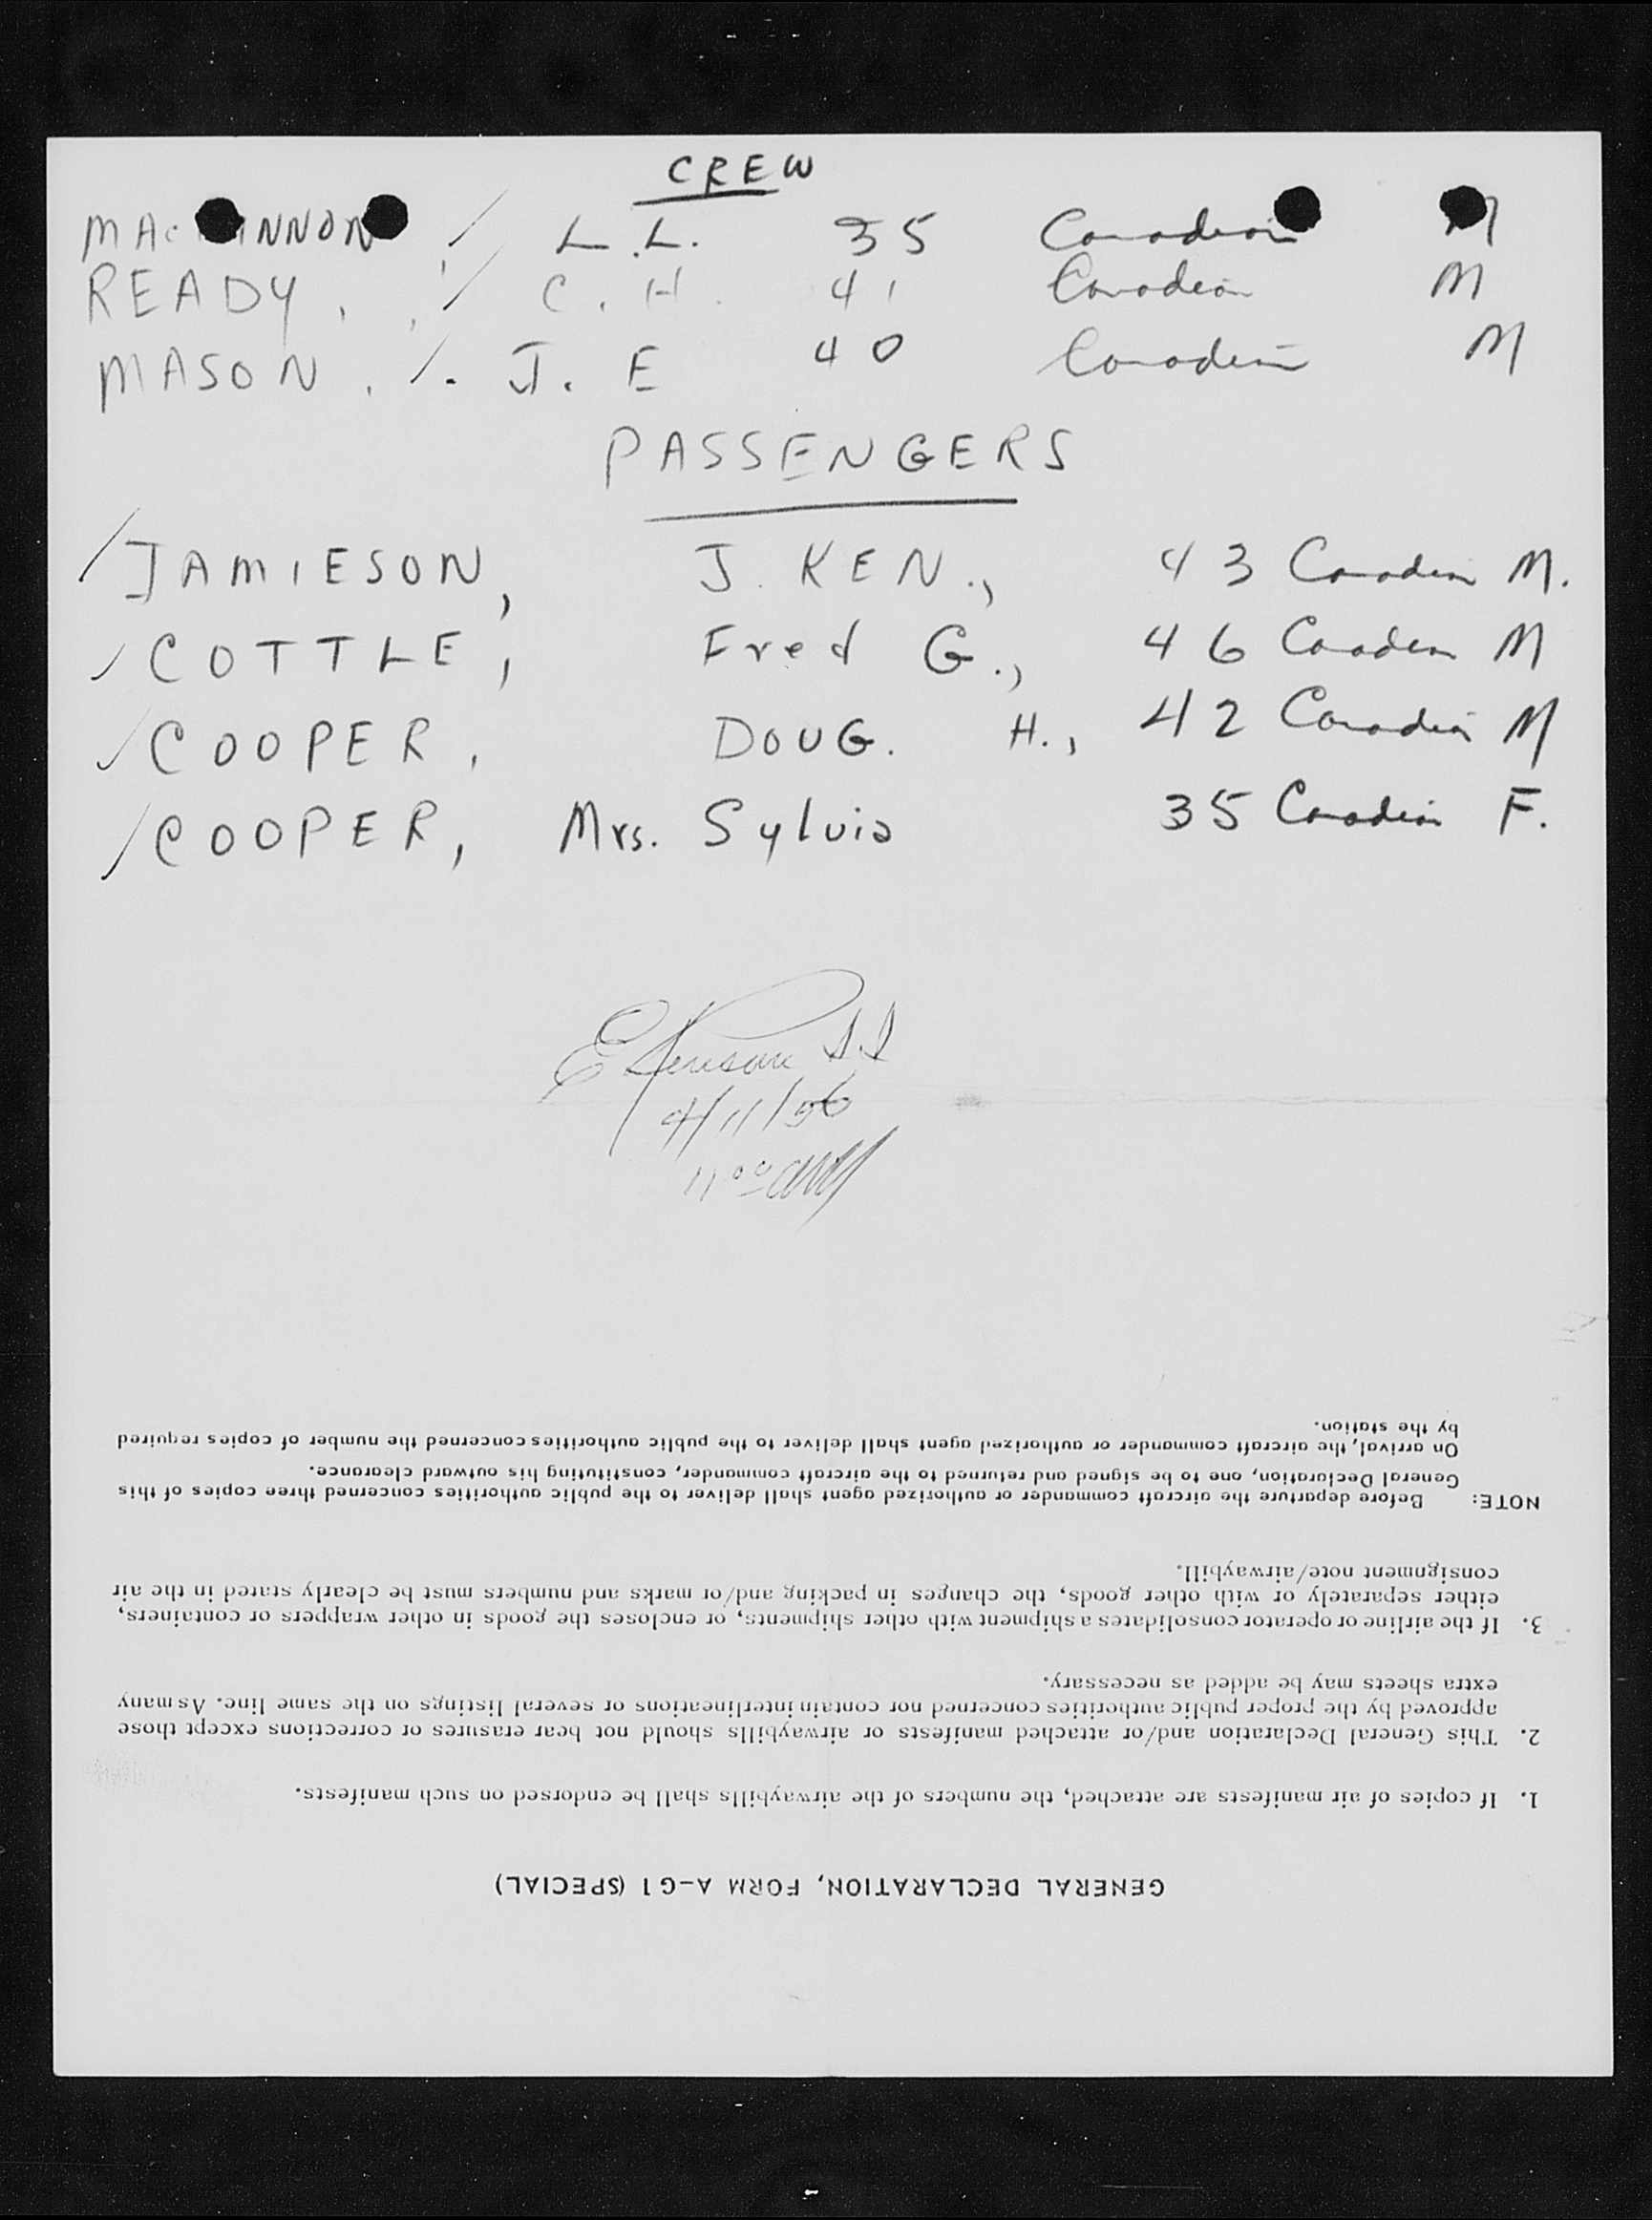 CREW
L.L. 35 Canadian M
READY, / C. H. 41 Canadian M
MASON, / J. E 40 Canadian M
PASSENGERS
/ JAMIESON, J. KEN., 43 Canadian M.
/ COTTLE, Fred G., 46 Canadian M
/ COOPER, DOUG. H., 42 Canadian M
/ COOPER, Mrs. Sylvia 35 Canadian F.
4/11/56
11 00
GENERAL DECLARATION, FORM A-G1 (SPECIAL)
1. If copies of air manifests are attached, the numbers of the airwaybills shall be endorsed on such manifests.
2. This General Declaration and/or attached manifests or airwaybills should not bear erasures or corrections except those
approved by the proper public authorities concerned nor contain interlineations or several listings on the same line. As many
extra sheets may be added as necessary.
3. If the airline or operator consolidates a shipment with other shipments, or encloses the goods in other wrappers or containers,
either separately or with other goods, the changes in packing and/or marks and numbers must be clearly stated in the air
consignment note/airwaybill.
NOTE: Before departure the aircraft commander or authorized agent shall deliver to the public authorities concerned three copies of this
General Declaration, one to be signed and returned to the aircraft commander, constituting his outward clearance.
On arrival, the aircraft commander or authorized agent shall deliver to the public authorities concerned the number of copies required
by the station.